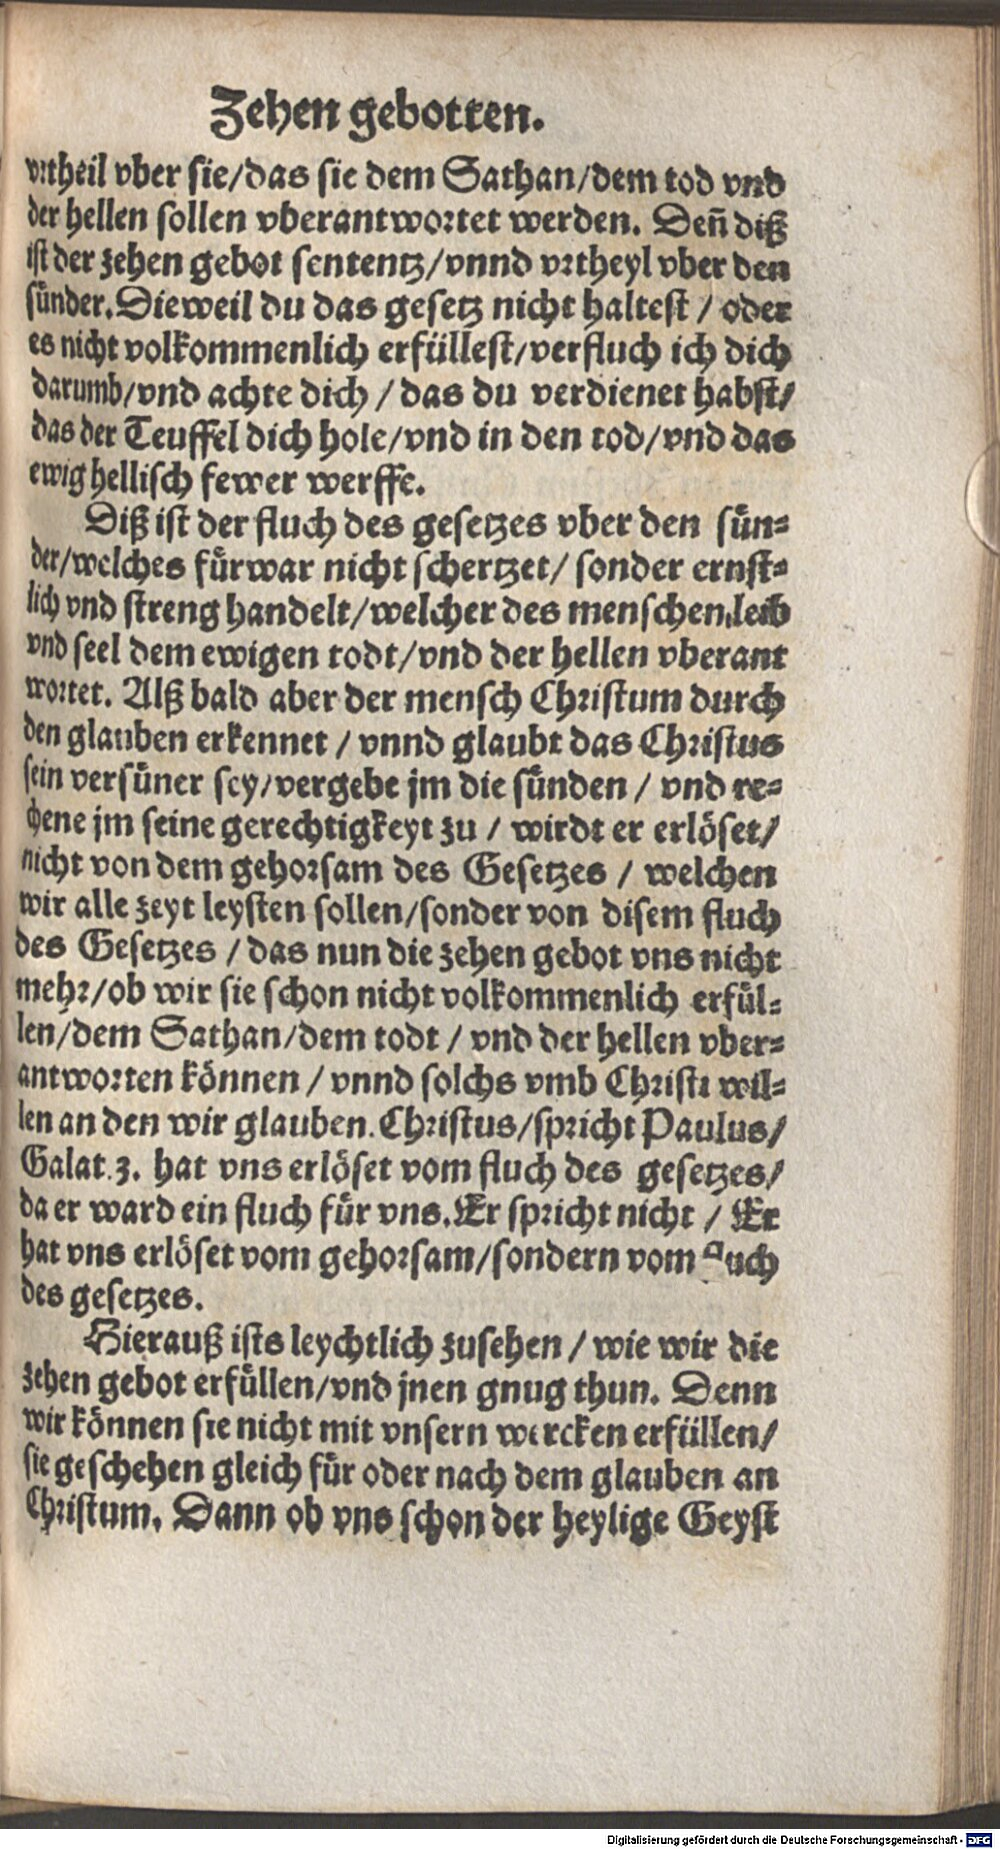 Zehen gebotten.
vrtheil vber sie/das sie dem Sathan/dem tod vnd
der hellen sollen vberantwortet werden. Deñ diß
ist der zehen gebot sententz/vnnd vrtheyl vber den
sünder. Dieweil du das gesetz nicht haltest / oder
es nicht volkommenlich erfüllest/verfluch ich dich
darumb/vnd achte dich / das du verdienet habst/
das der Teuffel dich hole/vnd in den tod/vnd das
ewig hellisch fewer werffe.
Diß ist der fluch des gesetzes vber den sün⸗
der/welches fürwar nicht schertzet/ sonder ernst⸗
lich vnd streng handelt/welcher des menschen leib
vnd seel dem ewigen todt/vnd der hellen vberant
wortet. Alß bald aber der mensch Christum durch
den glauben erkennet / vnnd glaubt das Christus
sein versüner sey/vergebe jm die sünden / vnd re⸗
chene jm seine gerechtigkeyt zu / wirdt er erlöset/
nicht von dem gehorsam des Gesetzes / welchen
wir alle zeyt leysten sollen/sonder von disem fluch
des Gesetzes / das nun die zehen gebot vns nicht
mehr/ob wir sie schon nicht volkommenlich erfül⸗
len/dem Sathan/dem todt / vnd der hellen vber⸗
antworten können / vnnd solchs vmb Christi wil⸗
len an den wir glauben. Christus/spricht Paulus/
Galat. 3. hat vns erlöset vom fluch des gesetzes/
da er ward ein fluch für vns. Er spricht nicht / Er
hat vns erlöset vom gehorsam/sondern vom fluch
des gesetzes.
Hierauß ists leychtlich zusehen / wie wir die
zehen gebot erfüllen/vnd jnen gnug thun. Denn
wir können sie nicht mit vnsern wercken erfüllen/
sie geschehen gleich für oder nach dem glauben an
Christum. Dann ob vns schon der heylige Geyst
Digitalisierung gefördert durch die Deutsche Forschungsgemeinschaft - DFG